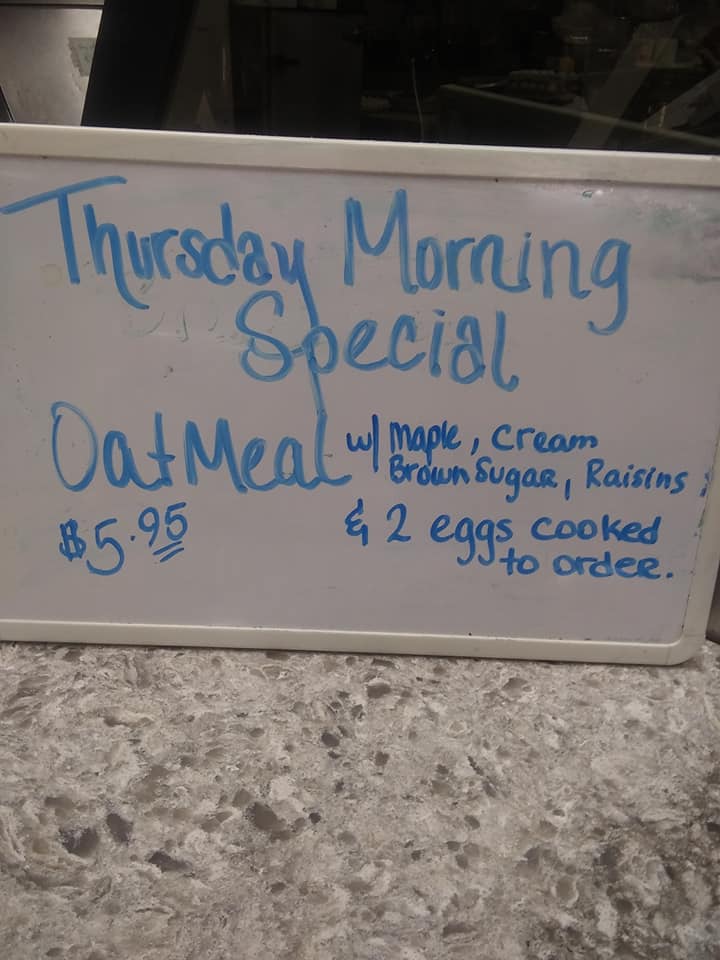 Thursday Morning
Special
OatMeal w/ Maple, Cream
Brown Sugar, Raisins
$5.95 & 2 eggs cooked
to order.